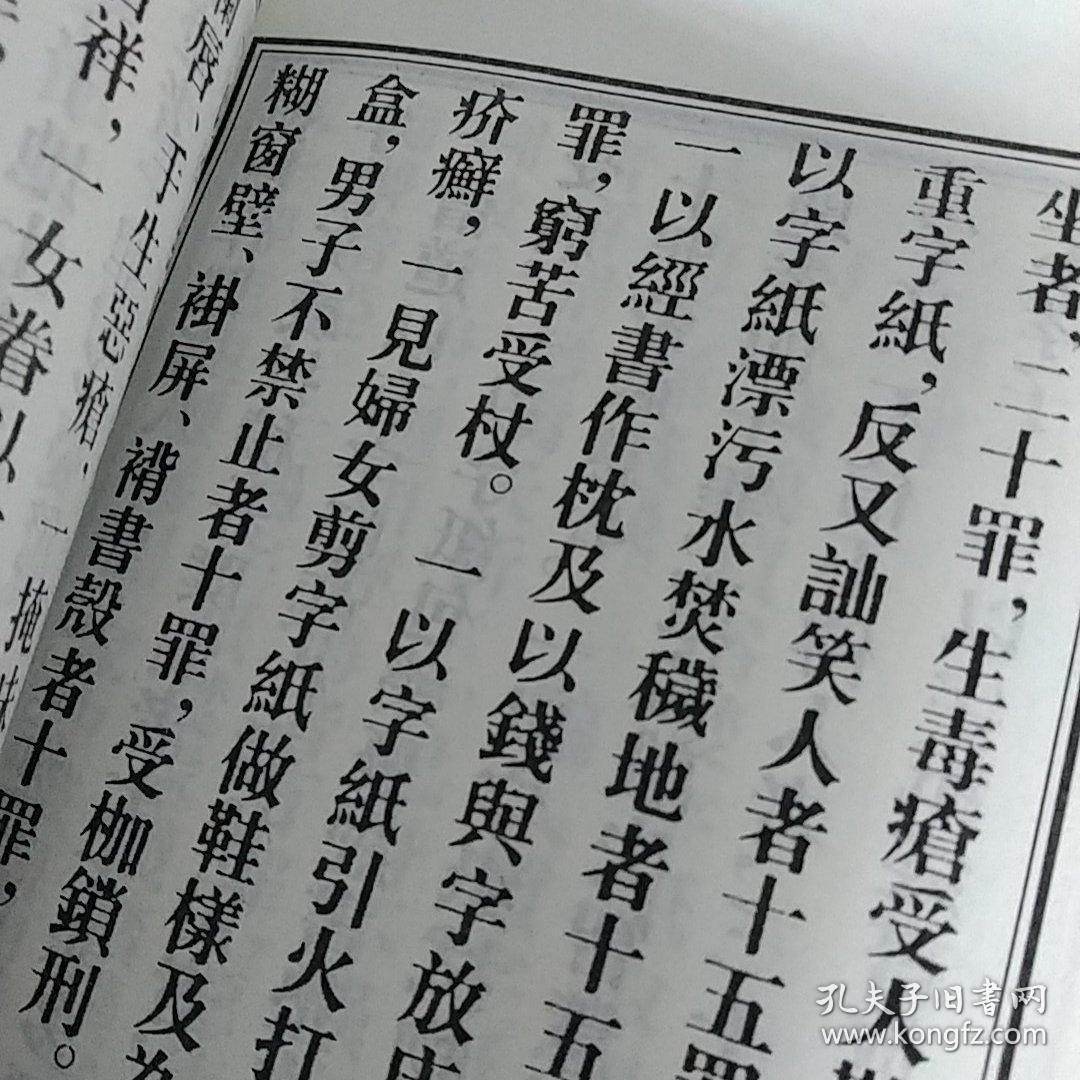 坐者，二十罪，生毒瘡受人
重字紙，反又訕笑人者十五罪
以字紙漂污水焚穢地者十五
一以經書作枕及以錢與字放
罪，窮苦受杖。一以字紙引火打
疥癬，一見婦女剪字紙做鞋樣及為
盒，男子不禁止者十罪，受枷鎖刑。
糊窗壁、褂屏、褙書殼者十罪，
唇、手生惡瘡、一掩
祥，一女眷以
孔夫子旧书网
www.kongfz.com